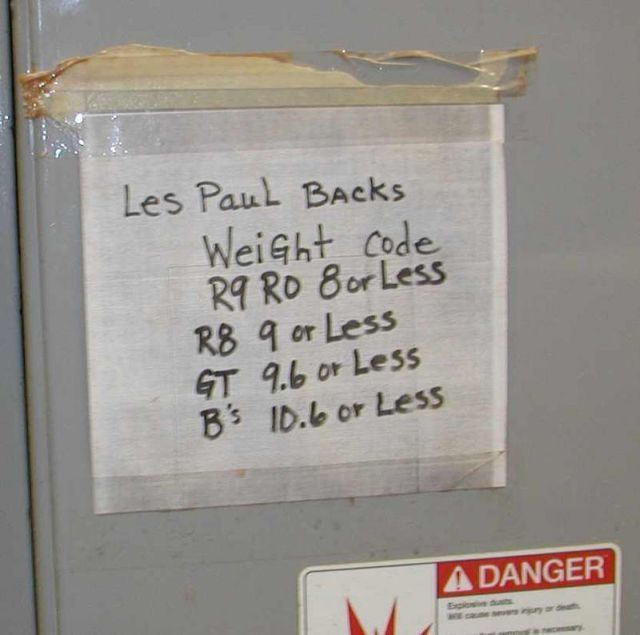 Les Paul Backs
Weight Code
R9 R0 8 or Less
R8 9 or Less
GT 9.6 or Less
B's 10.6 or Less
DANGER
Explosive dusts.
Will cause severe injury or death.
removal is necessary.